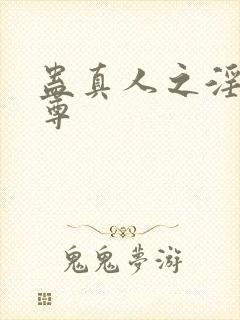 蛊真人之淫
尊
鬼鬼夢游